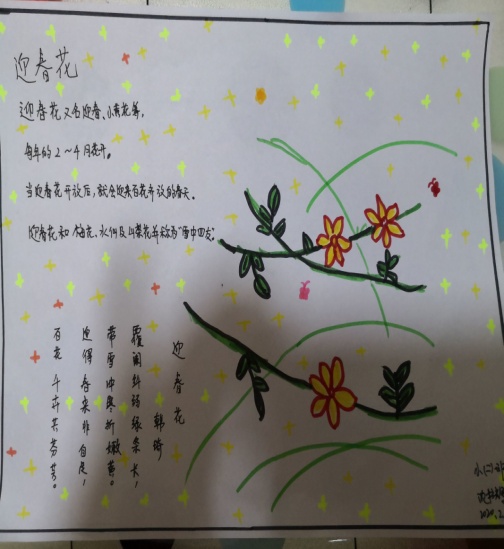 迎春花
迎春花又名迎春、小黄花等,
每年的2~4月花开。
当迎春花开放后,就会迎来百花齐放的春天。
迎春花和梅花、水仙及山茶花并称为“雪中四友”
迎春花
韩琦
覆阑纤弱绿条长,
带雪冲寒折嫩黄。
迎得春来非自足,
百花千卉共芬芳。
2020.2